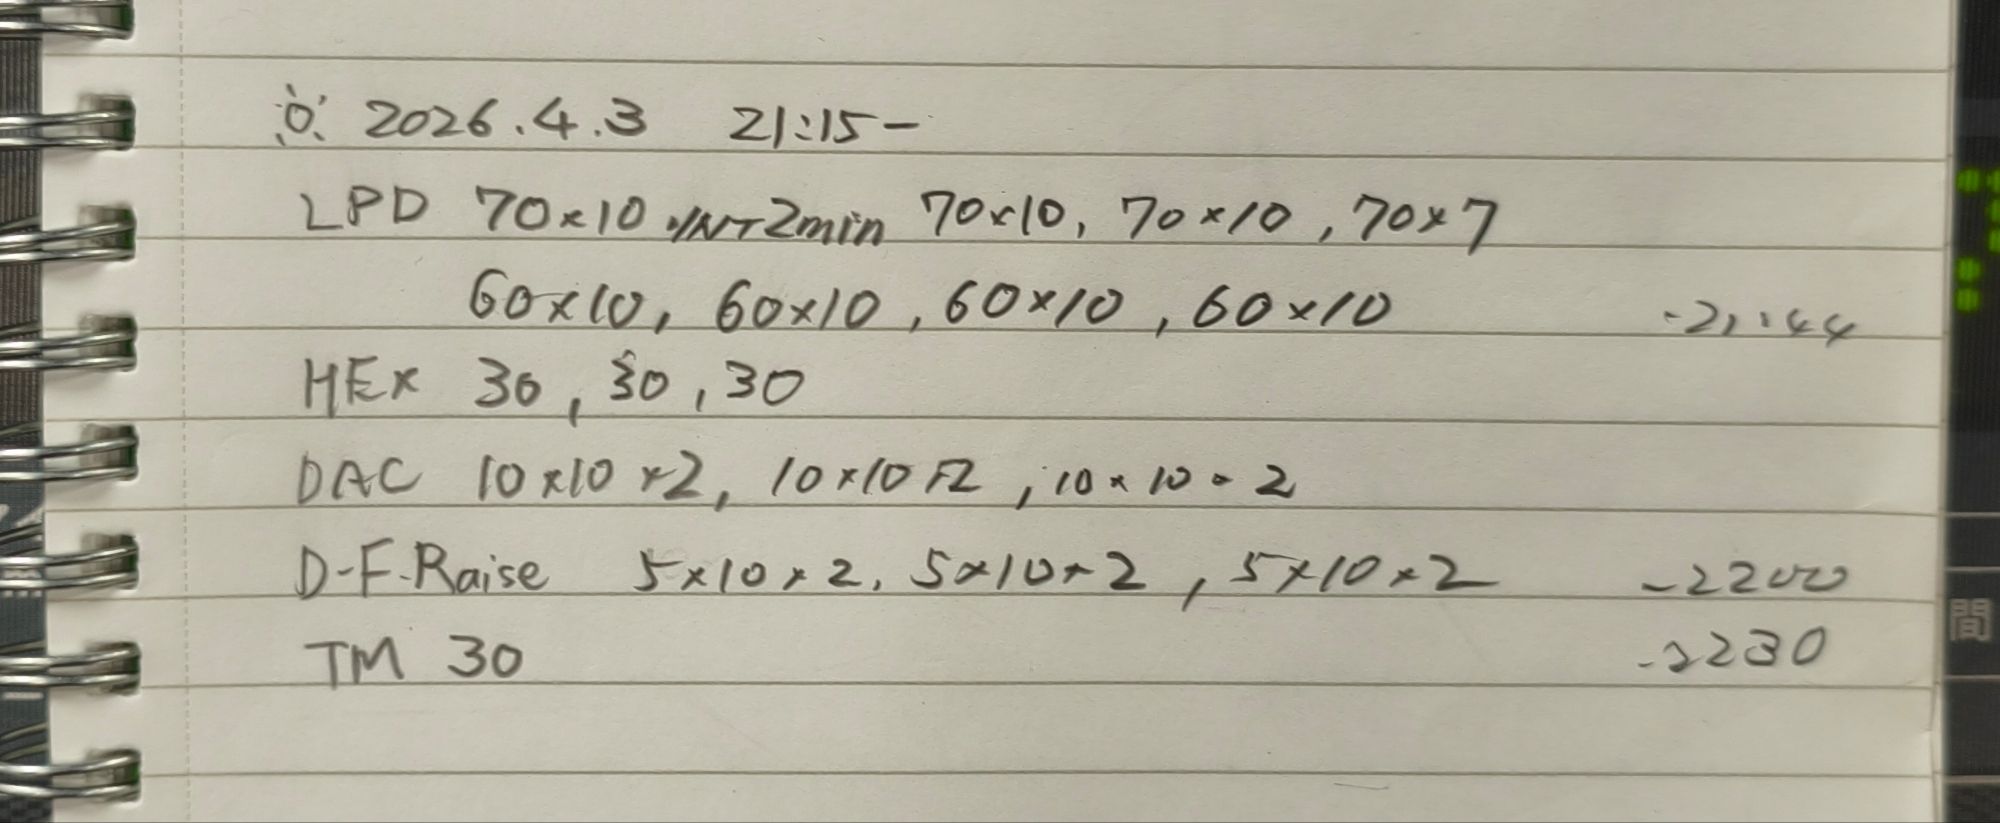 2026.4.3 21:15-
LPD 70×10 INT2min 70×10, 70×10, 70×7
60×10, 60×10, 60×10, 60×10 -21:44
HEx 30, 30, 30
DAC 10×10×2, 10×10×2, 10×10×2
D-F-Raise 5×10×2, 5×10×2, 5×10×2 -2200
TM 30 -2230
間